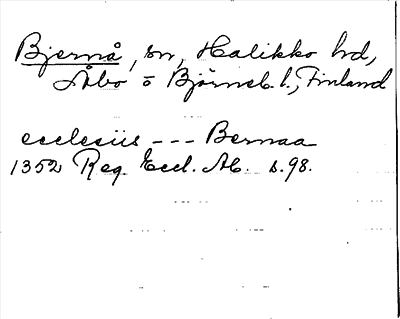 Bjernå, sn, Halikko hd,
Åbo o Björneb. l., Finland
ecclesiis --- Bernaa
1352 Reg. Eccl. Ab. s. 98.